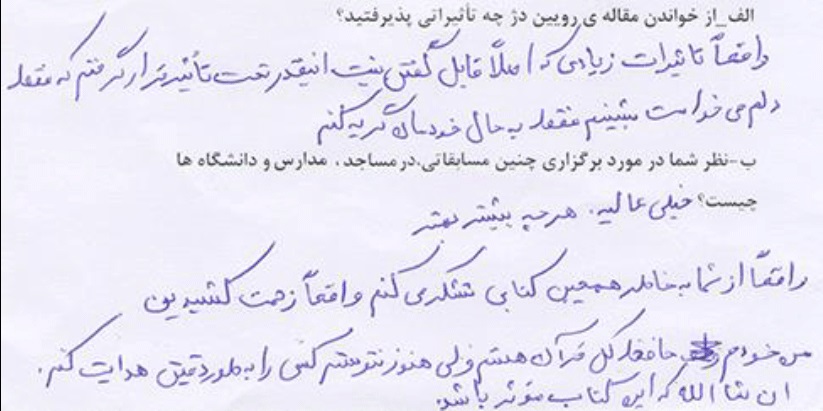 الف_از خواندن مقاله ی رویین دژ چه تأثیراتی پذیرفتید؟
واقعاً تاثیرات زیادی که اصلاً قابل گفتن نیست انیقدر تحت تأثیر قرار گرفتم که فقط
دلم می خواست بشینم فقط به حال خودمان گریه کنم
ب-نظر شما در مورد برگزاری چنین مسابقاتی،درمساجد ، مدارس و دانشگاه ها
چیست؟ خیلی عالیه. هرچه بیشتر بهتر
واقعاً از شما به خاطر همچین کتابی تشکر می کنم واقعاً زحمت کشیدین
من خودم حافظ کل قرآن هستم ولی هنوز نتونستم کسی را به طور دقیق هدایت کنم.
ان شا الله که این کتاب موثر باشد.